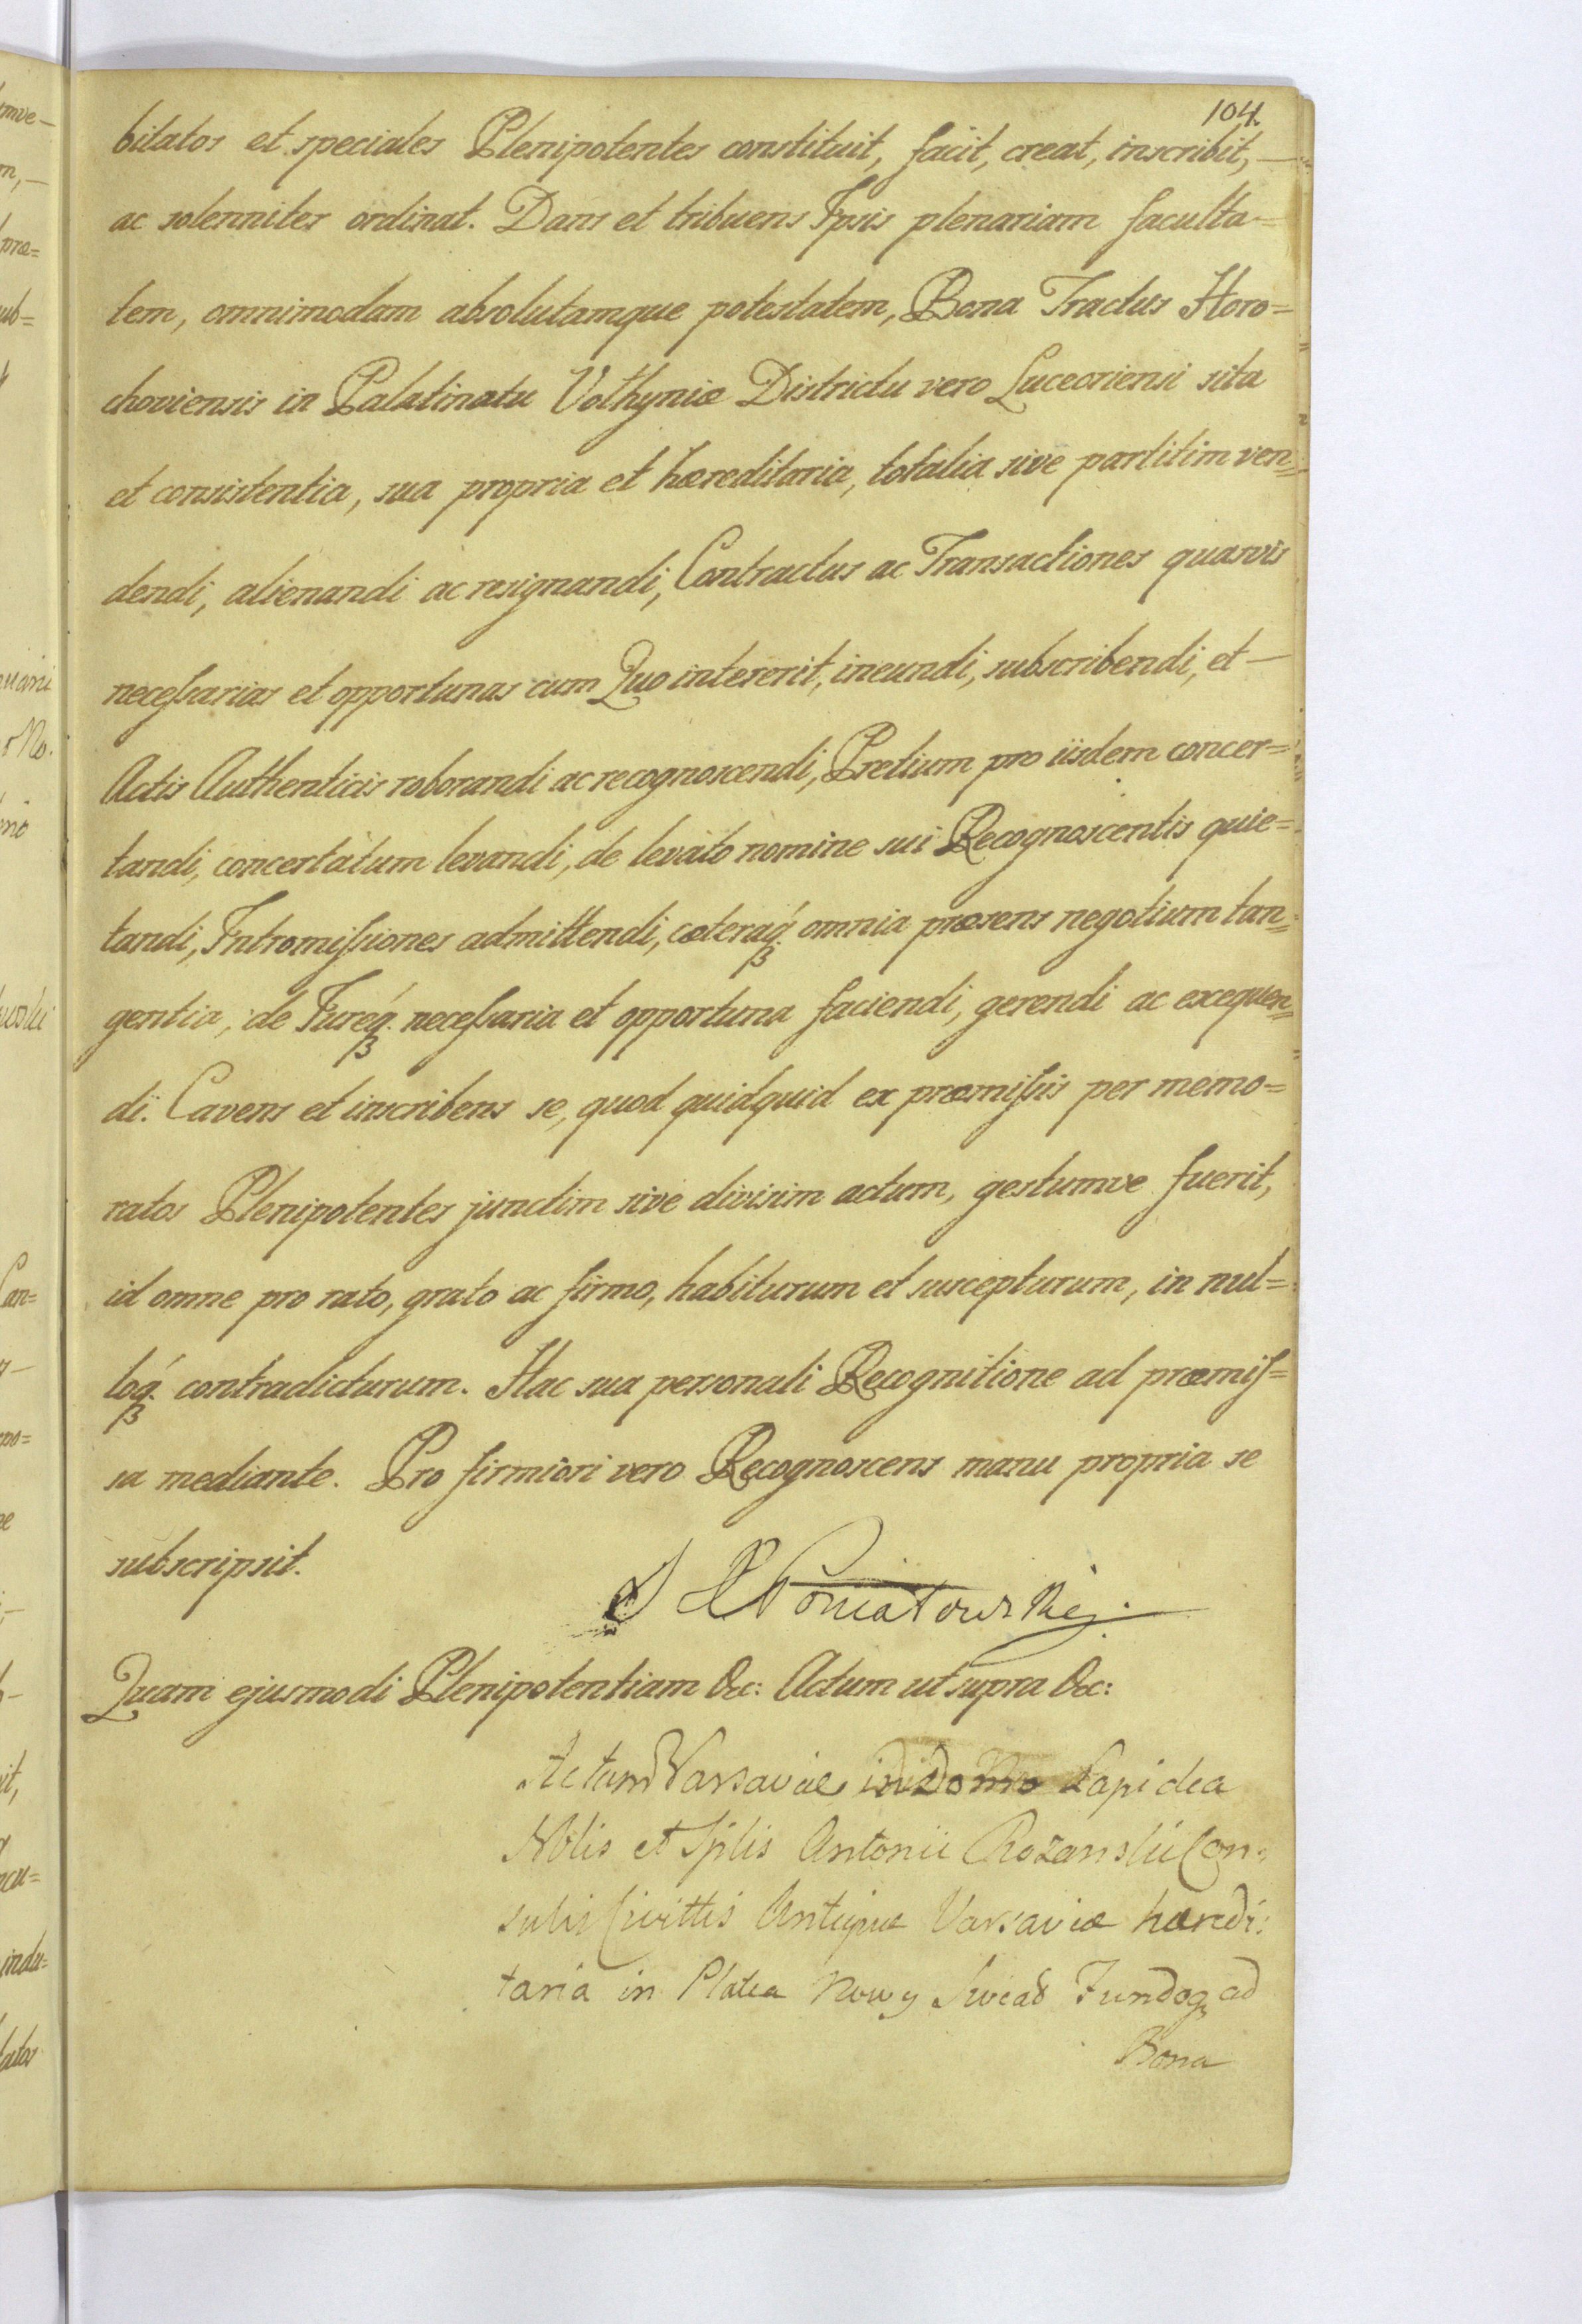 104.
bitatos et speciales Plenipotentes constituit, facit, creat, inscribit, —
ac solenniter ordinat. Dans et tribuens Ipsis plenariam faculta=
tem, omnimodam absolutamque potestatem, Bona Tractus Horo=
choviensis in Palatinatu Volhyniæ Districtu vero Luceoriensi sita
et consistentia, sua propria et hæreditaria, totalia sive partitim ven=
dendi, alienandi ac resignandi, Contractus ac Transactiones quasvis
necessarias et opportunas cum Quo intererit, ineundi, subscribendi, et —
Actis Authenticis roborandi ac recognoscendi, Pretium pro iisdem concer=
tandi, concertatum levandi, de levato nomine sui Recognoscentis quie=
tandi, Intromissiones admittendi, cæteraq́ʒ omnia præsens negotium tan=
gentia, de Jureq́ʒ necessaria et opportuna faciendi, gerendi ac exequen=
di. Cavens et inscribens se, quod quidquid ex præmissis per memo=
ratos Plenipotentes junctim sive divisim actum, gestumve fuerit,
id omne pro rato, grato ac firmo, habiturum et suscepturum, in nul=
loq́ʒ contradicturum. Hac sua personali Recognitione ad præmis=
sa mediante. Pro firmiori vero Recognoscens manu propria se
subscripsit.
Poniatowski.
Quam ejusmodi Plenipotentiam &c: Actum ut supra &c:
Actum Varsaviæ in Domo Lapidea
Nblis et Splis Antonii Rozanski Con=
sulis Civittis Antiquæ Varsaviæ hæredi:
taria in Platea Nowy Swiat Fundoqʒ ad
Bona